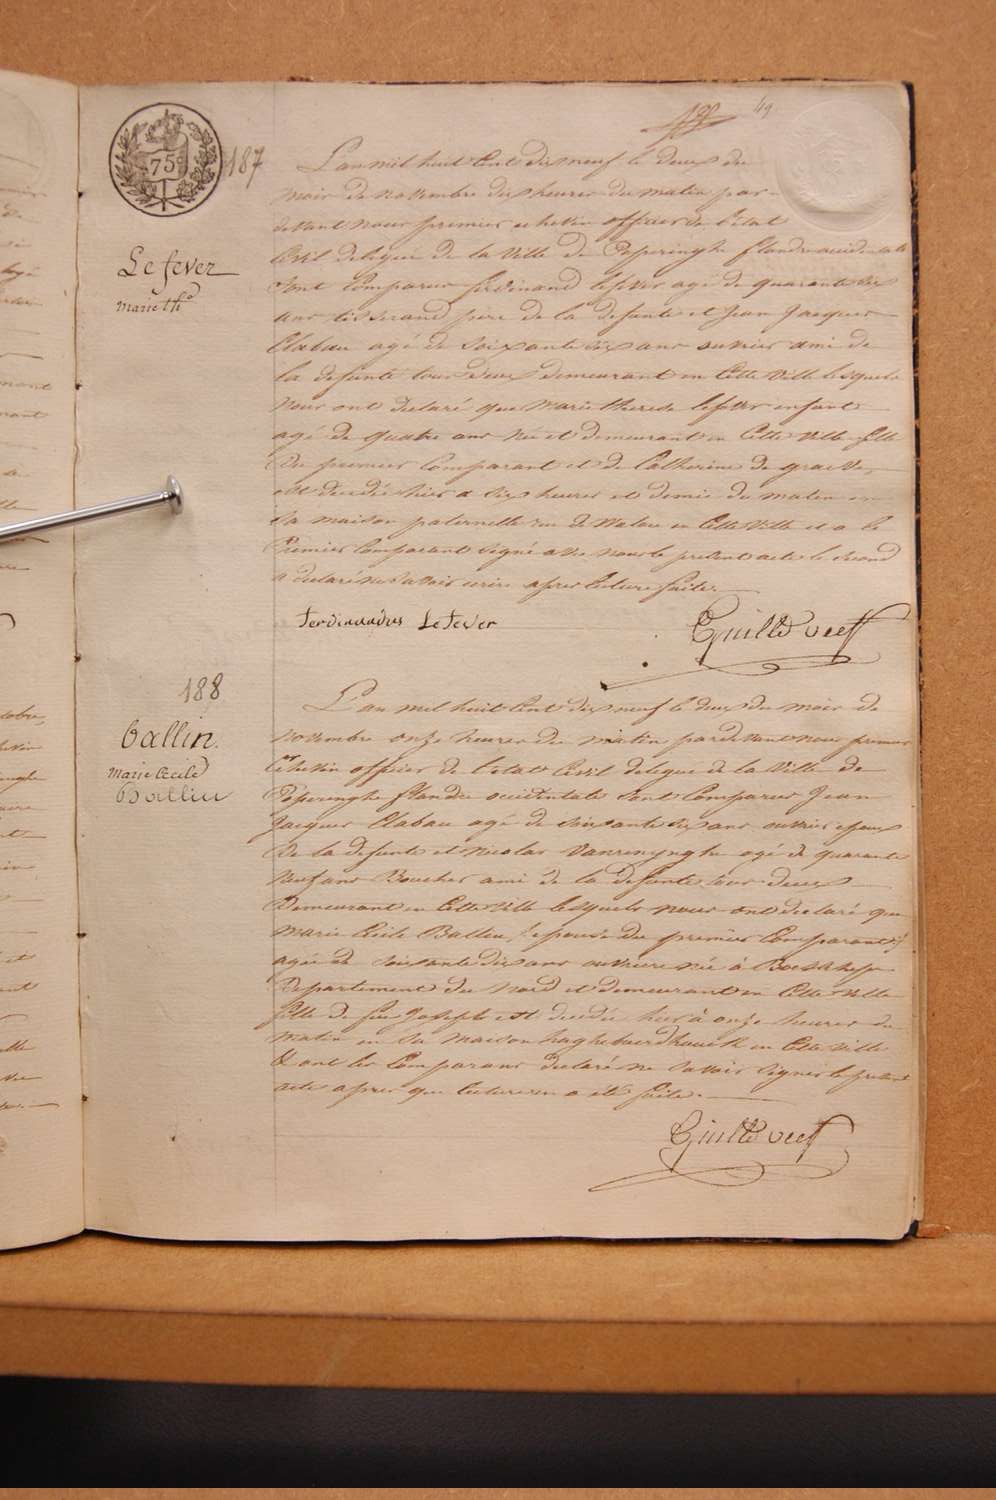 49
75
187
Lefever
marie th.
L'an mil huit Cent dix neuf le deux du
mois de novembre dix heures du matin par
devant nous premier echevin officier de l'état
Civil delegué de la ville de Poperinghe flandre occidentale
Sont Comparus ferdinand lefever agé de quarante six
ans tisserand pere de la defunte et Jean Jacques
Clabau agé de Soixante six ans ouvrier ami de
la defunte tous deux demeurant en Cette Ville lesquels
Nous ont declaré que marie therese lefever enfant
agé de quatre ans née et demeurant en Cette Ville fille
Du premier Comparant et de Catherine de graeve
est decedée hier a six heures et demie du matin en
Sa maison paternelle rue de Watou en Cette Ville et a le
Premier Comparant Signé avec nous le present acte le Second
a declaré ne Savoir ecrire apres lecture faite.
ferdinandus Lefever
188
Ballin.
Marie Cecile
Balliu
L'an mil huit Cent dix neuf le deux du mois de
novembre onze heures du matin pardevant nous premier
echevin officier de l'état Civil delegué de la Ville de
Poperinghe flandre occidentale Sont Comparus Jean
Jacques Clabau agé de soixante six ans ouvrier epoux
De la defunte et Nicolas Vanrenynghe agé de quarante
neuf ans Boucher ami de la defunte tous deux
Demeurant en Cette Ville lesquels nous ont declaré que
Marie Cecile Balliu epouse du premier Comparant
agée de soixante dix ans ouvriere née à Boeschepe
Departement du Nord et demeurant en Cette Ville
fille de feu Joseph est decedée hier à onze heures du
matin en Sa maison en Cette Ville
Et ont les Comparans declaré ne Savoir Signer le present
acte apres que lecture en a été faite.